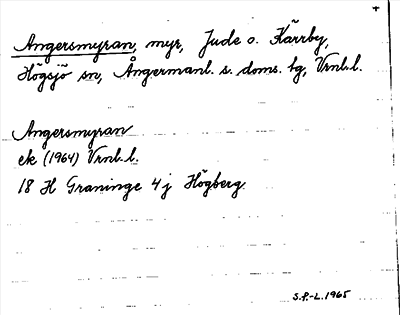 Angersmyran, myr, Jude o. Kärrby,
Högsjö sn, Ångermanl. s. doms. tg, Vrnl. l.
Angersmyran
ek (1964) Vrnl. l.
18 H Graninge 4 j Högberg.
S.P.-L. 1965